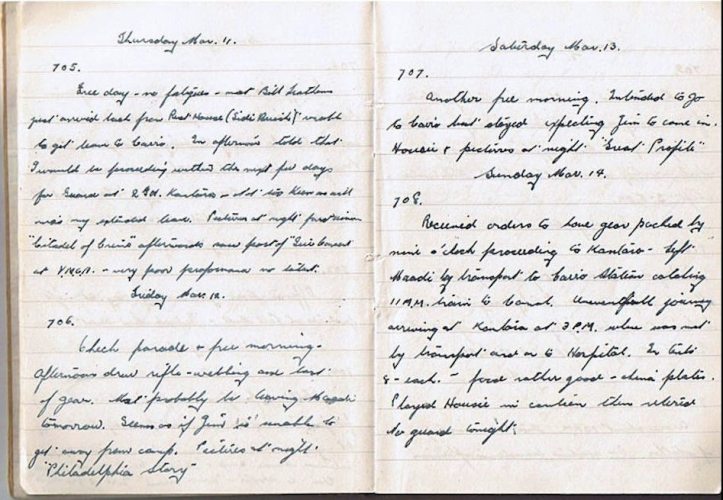 Thursday Mar. 11.
705.
Free day - no fatigues - met Bill
just arrived back from Rest House (Sidi Bishr) unable
to get leave to Cairo. In afternoon told that
I would be proceeding within the next few days
for Guard at 2 Gd. Kantara - Not too keen as will
miss my extended leave. Pictures at night
"Citadel of Crime" afterwards saw part of Concert
at Y.M.C.A. - very poor performance no talent.
Friday Mar. 12.
706.
Check parade & free morning -
Afternoon drew rifle - webbing and last
of gear. Most probably be leaving Maadi
tomorrow. Seems as if Jim is unable to
get away from camp. Pictures at night.
"Philadelphia Story"
Saturday Mar. 13.
707.
Another free morning. Intended to go
to Cairo but stayed expecting Jim to come in.
Housie & pictures at night "Great Profile"
Sunday Mar. 14.
708.
Received orders to have gear packed by
nine o'clock proceeding to Kantara - left
Maadi by transport to Cairo Station catching
11 A.M. train to Canal. Uneventful journey
arriving at Kantara at 3 P.M. where was met
by transport and on to Hospital. In tents
8 - each. - food rather good - china plates.
Played Housie in canteen then retired
No guard tonight.